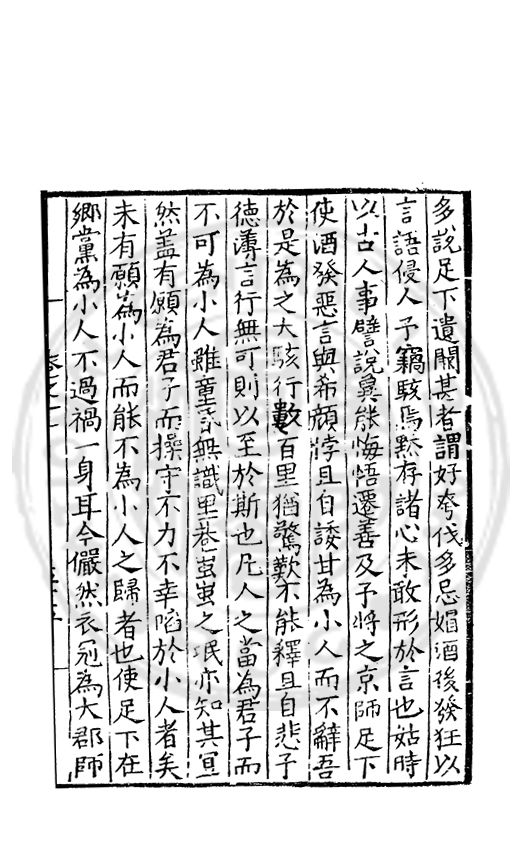 多說足下遺闕甚者謂好夸伐多忌媢酒後發狂以
言語侵人予竊駭焉默存諸心未敢形於言也姑時
以古人事譬說冀能悔悟遷善及予將之京師足下
使酒發惡言與希顏誖且自諉甘為小人而不辭吾
於是為之大駭行數百里猶驚歎不能釋且自悲予
德薄言行無可則以至於斯也凡人之當為君子而
不可為小人雖童豕無識里巷蚩蚩之氓亦知其宜
然蓋有願為君子而操守不力不幸陷於小人者矣
未有願為小人而能不為小人之歸者也使足下在
鄉黨為小人不過禍一身耳今儼然衣冠為大郡師
卷之十